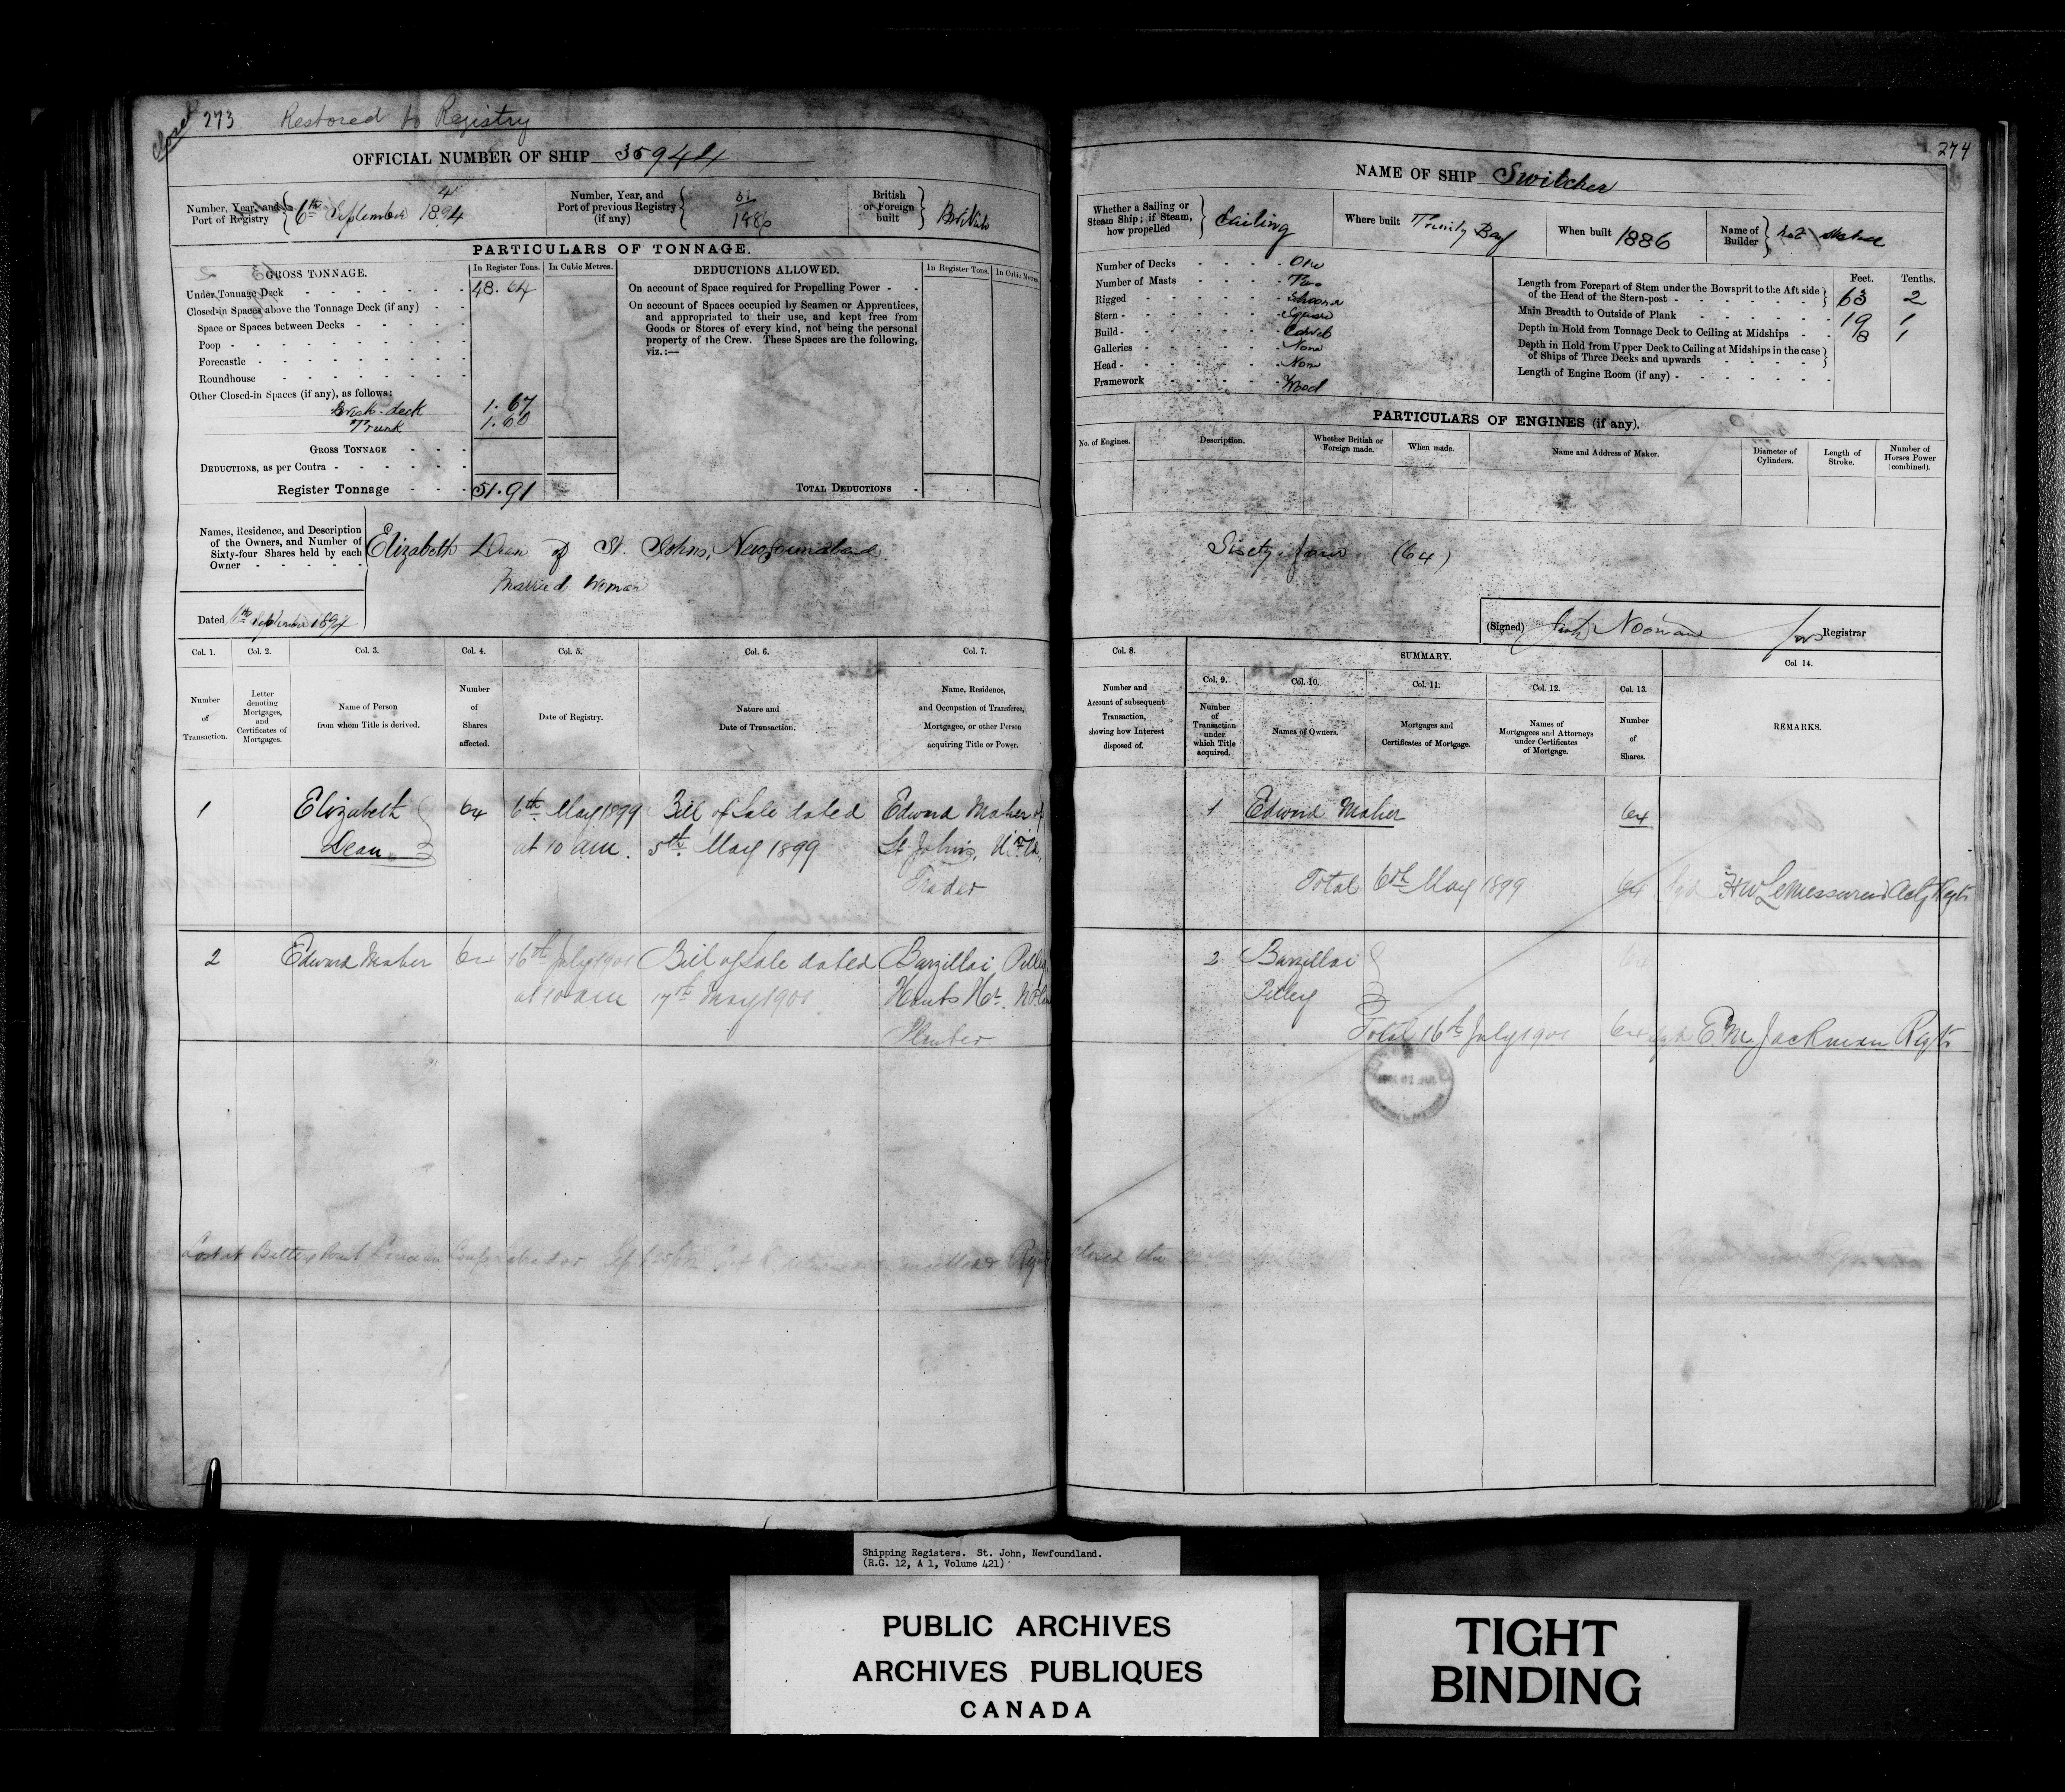 Closed 273 Restored to Registry
OFFICIAL NUMBER OF SHIP 35944
Number, Year, and Port of Registry 4 6th September 1894
Number, Year, and Port of previous Registry (if any) 1886
British or Foreign built British
PARTICULARS OF TONNAGE.
GROSS TONNAGE.
In Register Tons. In Cubic Metres.
Under Tonnage Deck 48.64
Closed-in Spaces above the Tonnage Deck (if any)
Space or Spaces between Decks
Poop
Forecastle
Roundhouse
Other Closed-in Spaces (if any), as follows:
Break-deck 1.67
Trunk 1.60
GROSS TONNAGE
DEDUCTIONS, as per Contra
Register Tonnage 51.91
DEDUCTIONS ALLOWED.
In Register Tons. In Cubic Metres
On account of Space required for Propelling Power
On account of Spaces occupied by Seamen or Apprentices,
and appropriated to their use, and kept free from
Goods or Stores of every kind, not being the personal
property of the Crew. These Spaces are the following,
viz.:—
TOTAL DEDUCTIONS
Names, Residence, and Description
of the Owners, and Number of
Sixty-four Shares held by each
Owner
Elizabeth Dean of St. Johns, Newfoundland
Married Woman
Dated 6th September 1894
Col. 1. Col. 2. Col. 3. Col. 4. Col. 5. Col. 6. Col. 7.
Number of Transaction.
Letter denoting Mortgages, and Certificates of Mortgages.
Name of Person from whom Title is derived.
Number of Shares affected.
Date of Registry.
Nature and Date of Transaction.
Name, Residence, and Occupation of Transferee, Mortgagee, or other Person acquiring Title or Power.
1 Elizabeth 64 6th May 1899 Bill of Sale dated Edward Maher of
Dean at 10 am. 5th May 1899 St John's, N.F.ld,
Trader
2 Edward Maher 64 16th July 1901 Bill of Sale dated Barzillai Pilley
at 10 am 17th May 1901 Hants Hr. N.F.
Planter
Lost at Battery Point
274
NAME OF SHIP Switcher
Whether a Sailing or Steam Ship; if Steam, how propelled Sailing
Where built Trinity Bay
When built 1886
Name of Builder not stated
Number of Decks One
Number of Masts Two
Rigged Schooner
Stern Square
Build Carvel
Galleries None
Head None
Framework Wood
Feet. Tenths.
Length from Forepart of Stem under the Bowsprit to the Aft side
of the Head of the Stern-post 63 2
Main Breadth to Outside of Plank 19 1
Depth in Hold from Tonnage Deck to Ceiling at Midships 8 1
Depth in Hold from Upper Deck to Ceiling at Midships in the case
of Ships of Three Decks and upwards
Length of Engine Room (if any)
PARTICULARS OF ENGINES (if any).
No. of Engines.
Description.
Whether British or Foreign made.
When made.
Name and Address of Maker.
Diameter of Cylinders.
Length of Stroke.
Number of Horses Power (combined).
Sixty-four (64)
(Signed) Noonan for Registrar
Col. 8. SUMMARY. Col 14.
Col. 9. Col. 10. Col. 11. Col. 12. Col. 13.
Number and Account of subsequent Transaction, showing how Interest disposed of.
Number of Transaction under which Title acquired.
Names of Owners.
Mortgages and Certificates of Mortgage.
Names of Mortgagees and Attorneys under Certificates of Mortgage.
Number of Shares.
REMARKS.
1 Edward Maher 64
Total 6th May 1899 64 Sgd HW LeMessurier Actg Regtr
2 Barzillai
Pilley
Total 16th July 1901 64 Sgd E.M. Jackman Regtr
Shipping Registers. St. John, Newfoundland.
(R.G. 12, A 1, Volume 421)
PUBLIC ARCHIVES
ARCHIVES PUBLIQUES
CANADA
TIGHT
BINDING